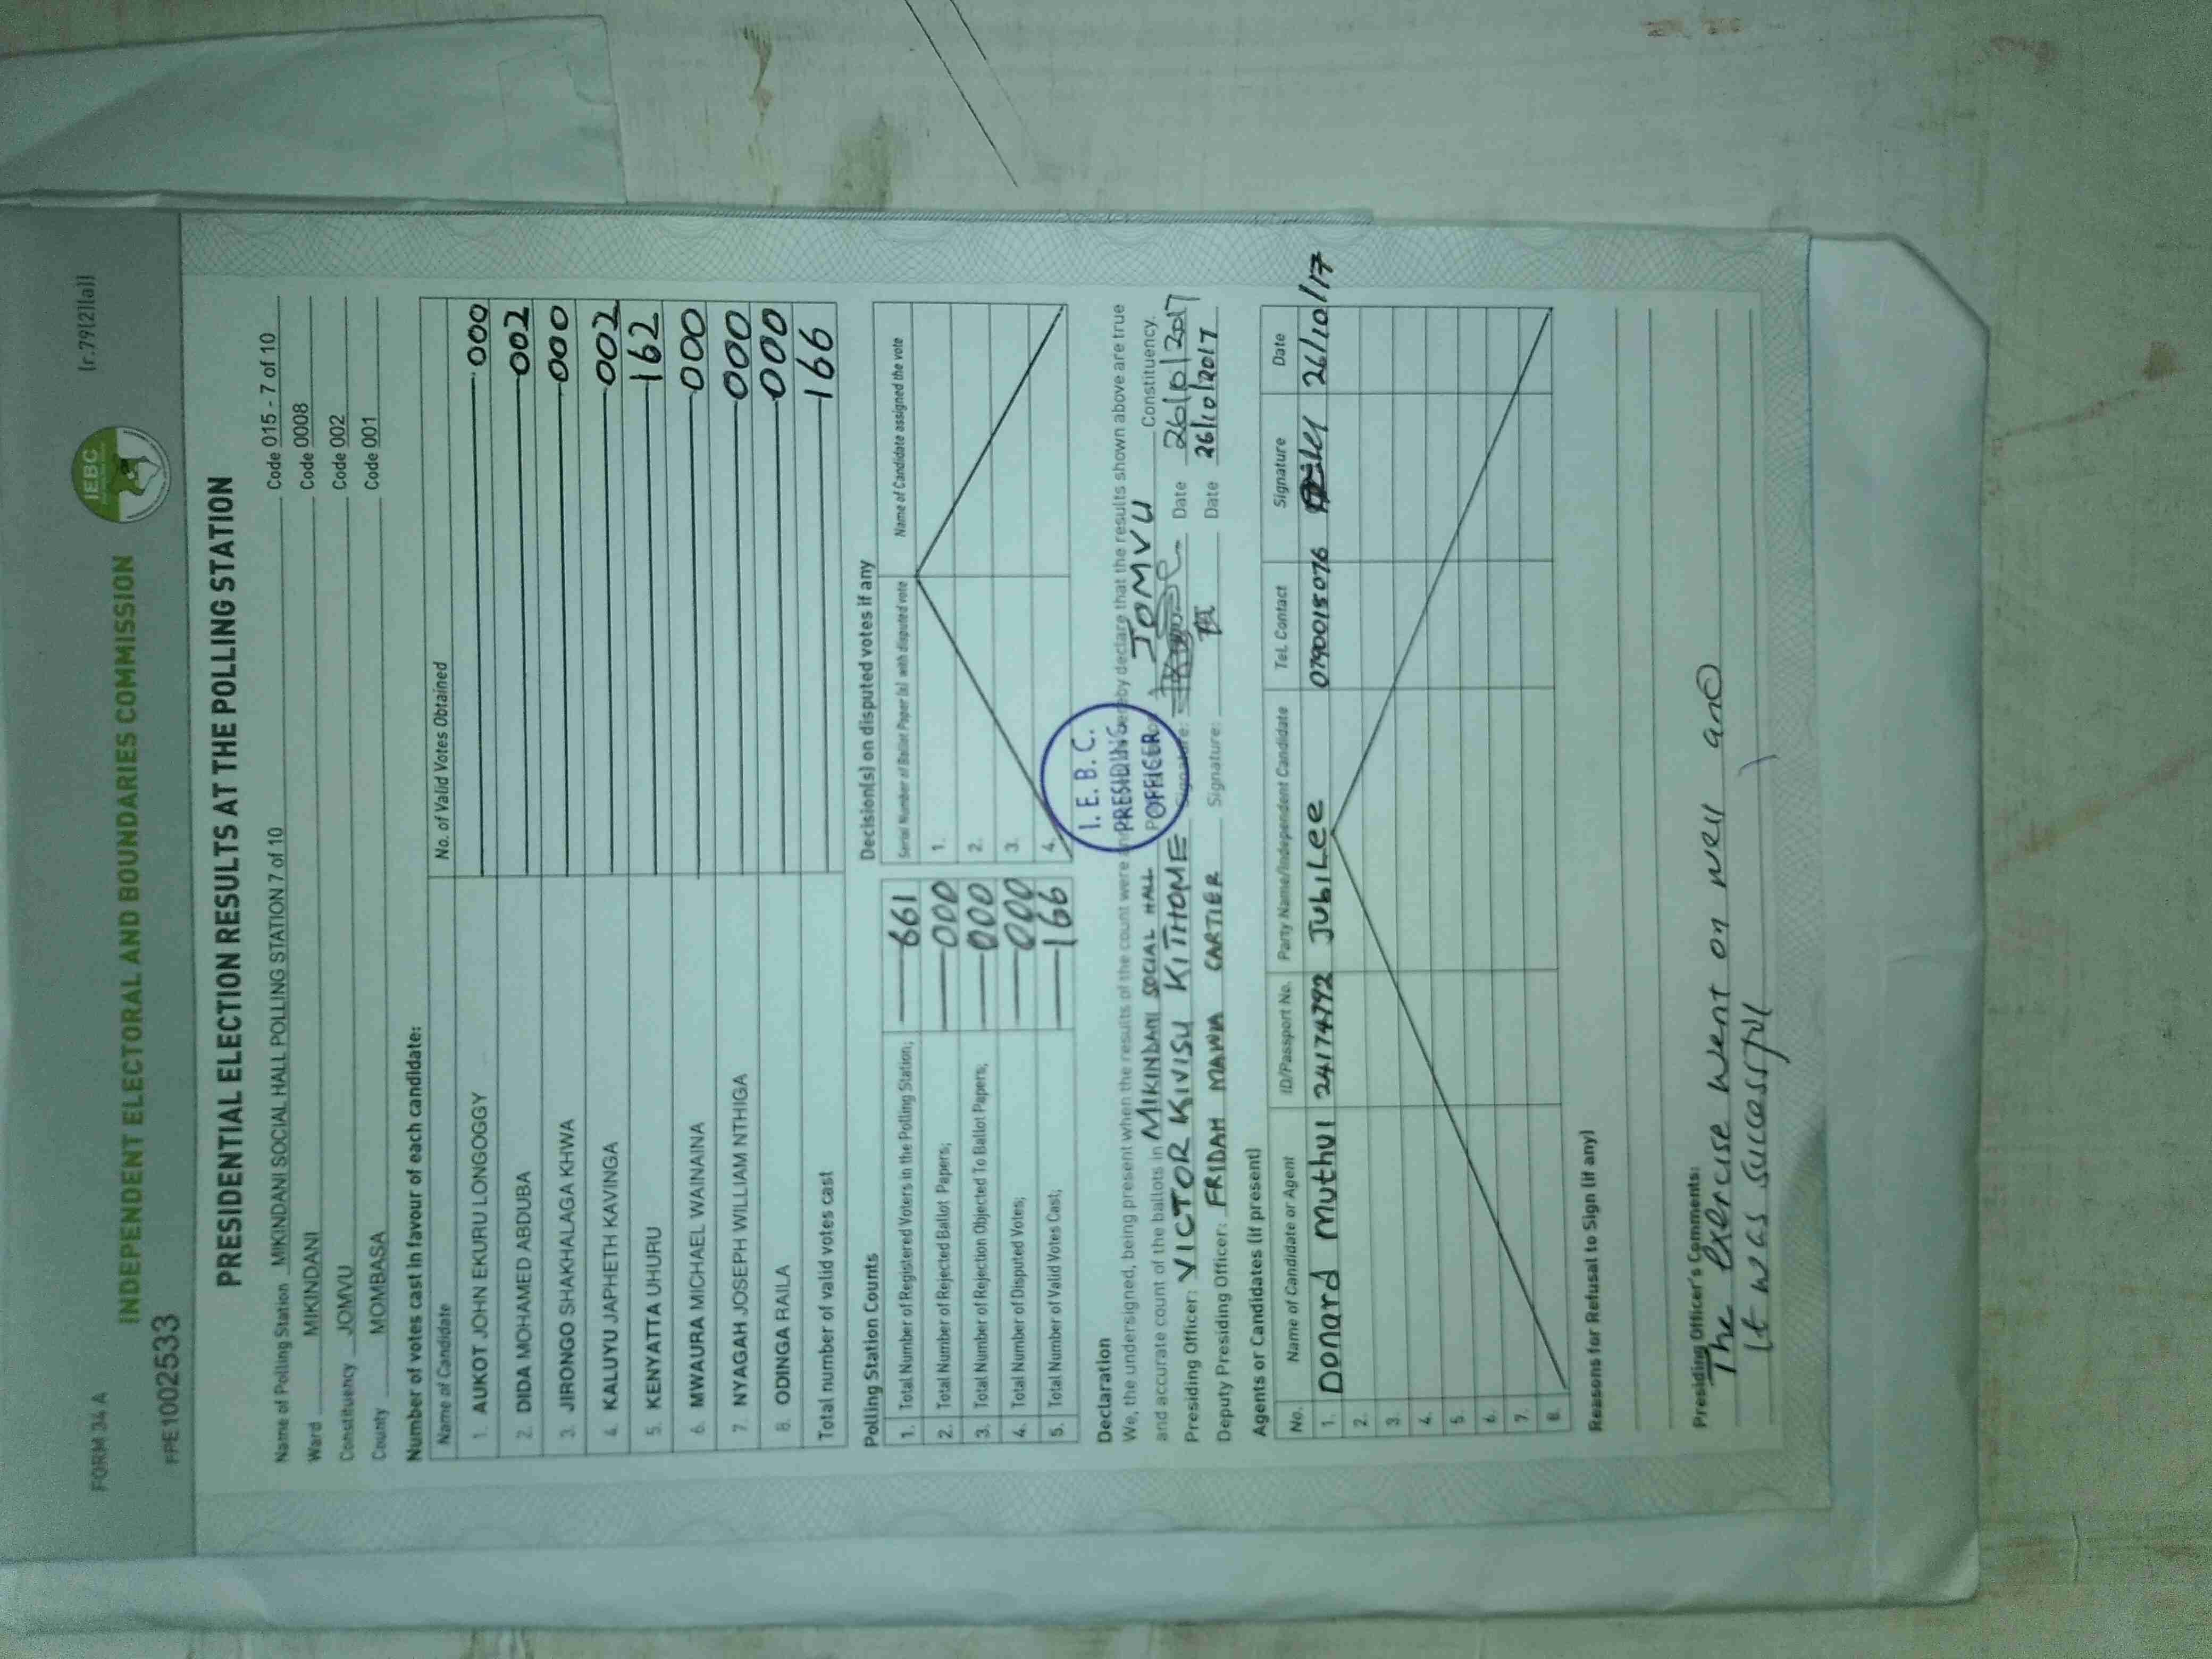 FORM 34 A
[r.79(2)(a)]
IEBC
INDEPENDENT ELECTORAL AND BOUNDARIES COMMISSION
PRE1002533
PRESIDENTIAL ELECTION RESULTS AT THE POLLING STATION
Name of Polling Station MIKINDANI SOCIAL HALL POLLING STATION 7 of 10 Code 015 - 7 of 10
Ward MIKINDANI Code 0008
Constituency JOMVU Code 002
County MOMBASA Code 001
Number of votes cast in favour of each candidate:
Name of Candidate No. of Valid Votes Obtained
1. AUKOT JOHN EKURU LONGOGGY 000
2. DIDA MOHAMED ABDUBA 002
3. JIRONGO SHAKHALAGA KHWA 000
4. KALUYU JAPHETH KAVINGA 002
5. KENYATTA UHURU 162
6. MWAURA MICHAEL WAINAINA 000
7. NYAGAH JOSEPH WILLIAM NTHIGA 000
8. ODINGA RAILA 000
Total number of valid votes cast 166
Polling Station Counts
1. Total Number of Registered Voters in the Polling Station; 661
2. Total Number of Rejected Ballot Papers; 000
3. Total Number of Rejection Objected To Ballot Papers; 000
4. Total Number of Disputed Votes; 000
5. Total Number of Valid Votes Cast; 166
Decision(s) on disputed votes if any
Serial Number of Ballot Paper (s) with disputed vote Name of Candidate assigned the vote
1.
2.
3.
4.
I. E. B. C.
PRESIDING
OFFICER
Declaration
We, the undersigned, being present when the results of the count were hereby declare that the results shown above are true
and accurate count of the ballots in MIKINDANI SOCIAL HALL JOMVU Constituency.
Presiding Officer: VICTOR KIVISU KITHOME Signature: Date 26/10/2017
Deputy Presiding Officer: FRIDAH MAWIA CARTIER Signature: Date 26/10/2017
Agents or Candidates (if present)
No. Name of Candidate or Agent ID/Passport No. Party Name/Independent Candidate Tel. Contact Signature Date
1. Donard Muthui 24174792 JubiLee 0790015076 26/10/17
2.
3.
4.
5.
6.
7.
8.
Reasons for Refusal to Sign (if any)
Presiding Officer's Comments:
The exercise went on well and
it was successful